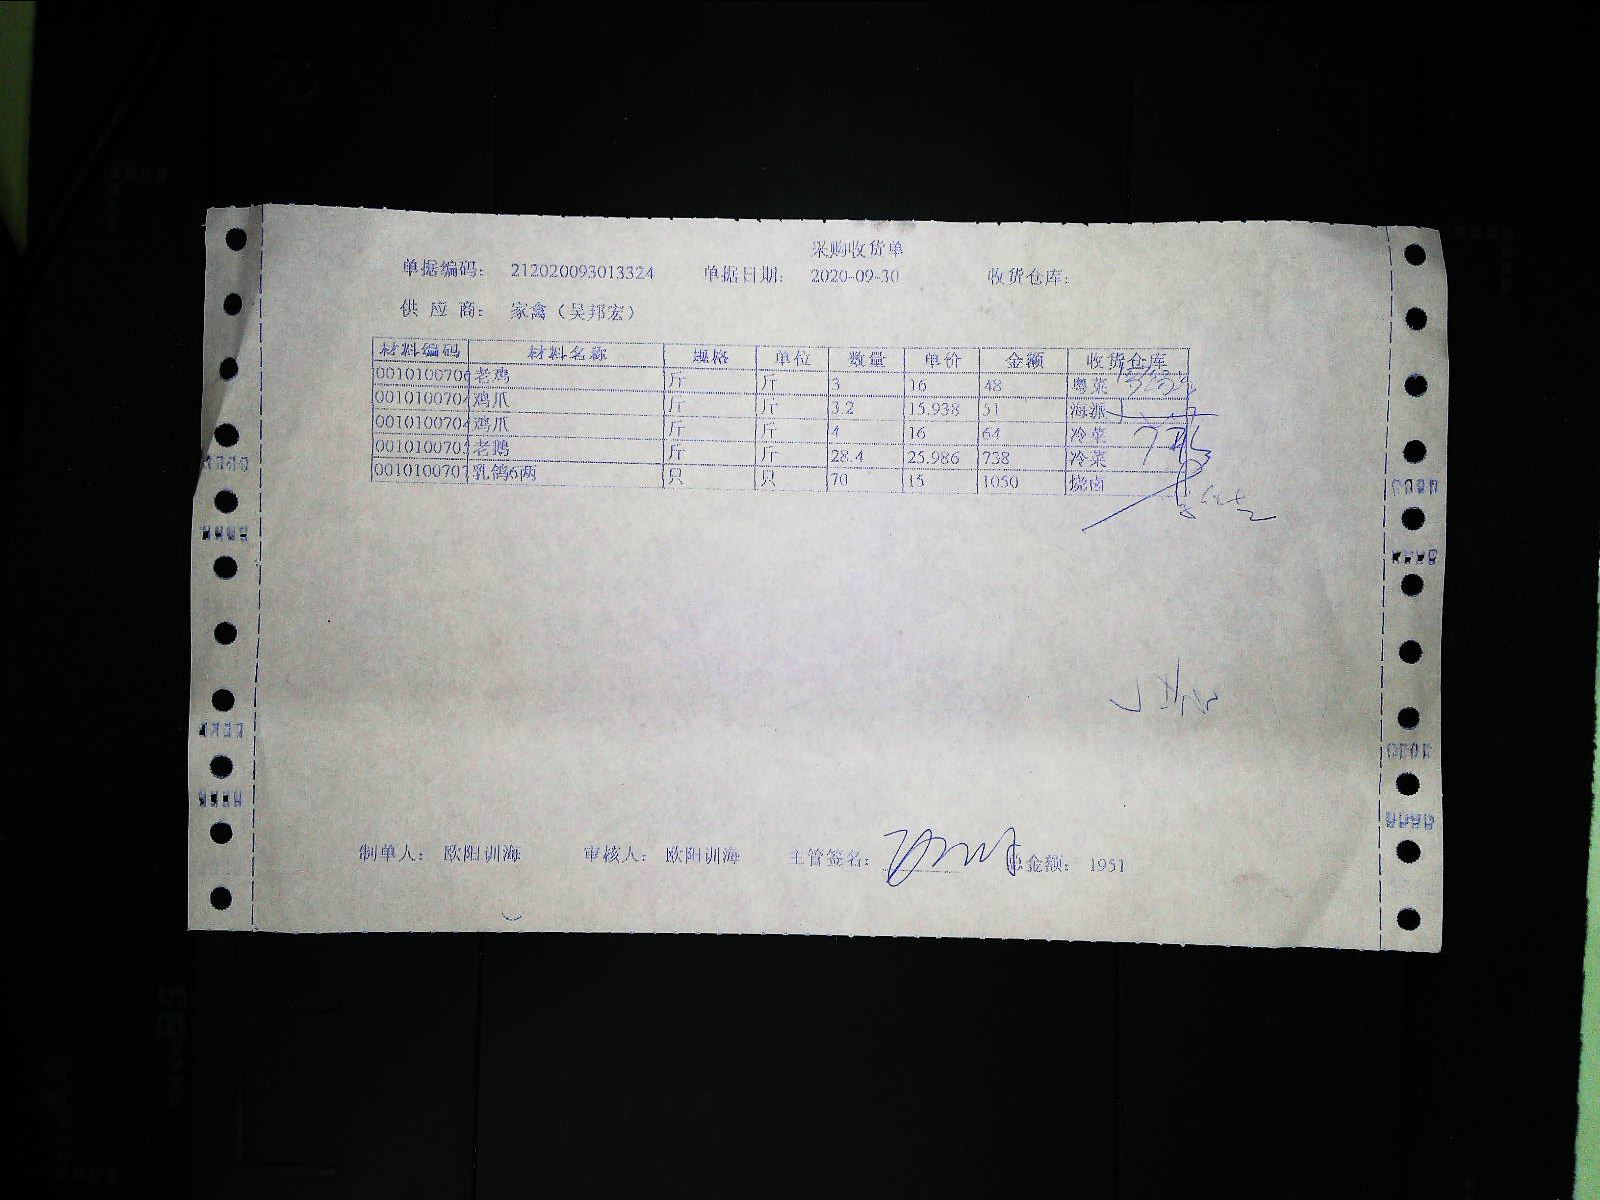 采购收货单
单据编码: 212020093013324 单据日期: 2020-09-30 收货仓库:
供 应 商: 家禽(吴邦宏)
材料编码 材料名称 规格 单位 数量 单价 金额 收货仓库
0010100706 老鸡 斤 斤 3 16 48 粤菜
001010070 鸡爪 斤 斤 3.2 15.938 51 海派
001010070 鸡爪 斤 斤 4 16 64 冷菜
001010070 老鹅 斤 斤 28.4 25.986 738 冷菜
001010070 乳鸽6两 只 只 70 15 1050 烧卤
制单人: 欧阳训海 审核人: 欧阳训海 主管签名: 总金额: 1951